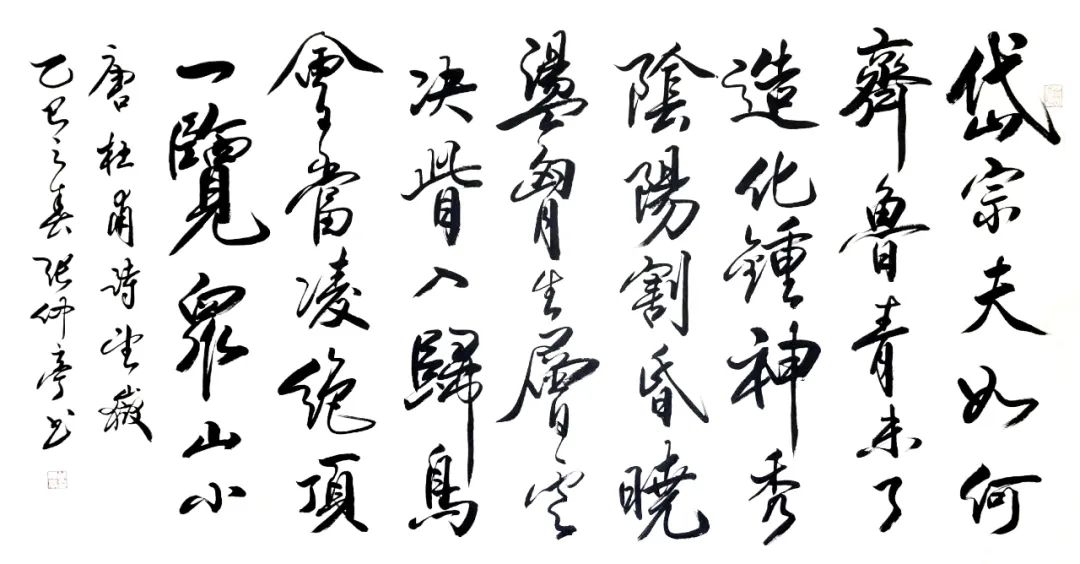 岱宗夫如何
齊魯青未了
造化鍾神秀
陰陽割昏曉
盪胷生層雲
决眥入歸鳥
會當凌絶頂
一覽眾山小
唐杜甫詩望嶽
乙巳之春張仲亭书